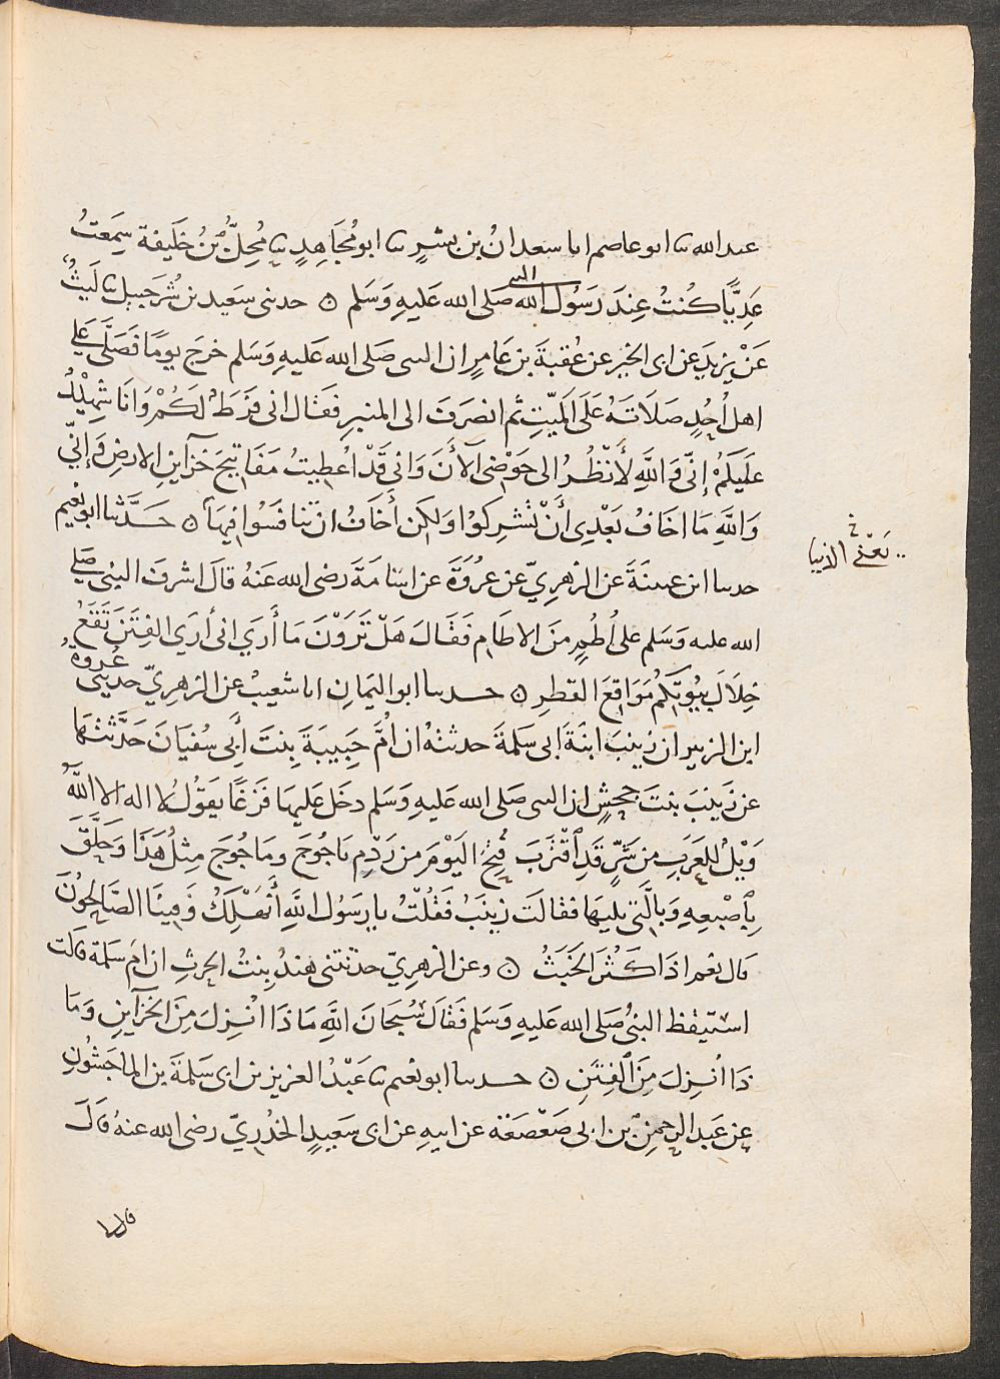 عبد الله ثنا ابو عاصم انا سعدانُ بن بشرٍ ثنا ابو مُجَاهِدٍ ثنا مُحِلُّ بْنُ خَلِيفَة سَمِعتُ
عَدِيًّا كُنتُ عِندَ رَسُول الله صَلى الله عَليهِ وَسَلم ۝ حدثنى سَعيد بن شُرَحبيل ثنا لَيثُ
النبى
عَنْ يزيدَ عن ابى الخير عن عُقبةَ بن عَامرٍ ان النبى صَلى الله عَليهِ وَسَلم خرجَ يومًا فَصَلَّى عَلى
اهل اُحُدٍ صَلَاتَهُ عَلَى المَيِّتِ ثم انصرَفَ الى المنبرِ فَقَال انى فَرَطٌ لَكُمْ وَانَا شَهِيْدٌ
عَلَيكُمْ إنّى وَاللَّهِ لَأَنْظُرُ الى حَوْضى الآنَ وَانى قَدْ اُعطِيتُ مَفَاتِيحَ خَزآينِ الارضِ وَإنّى
وَاللَّهِ مَا اخَافُ بَعْدِى أَنْ تُشرِكوُا وَلكِن أَخَافُ ان تَنَافَسُوا فِيهَا ۝ حَدَّثنا ابو نعيم
يَعْنى الدنيا
حدثنا ابن عيينَةَ عن الزهرِيّ عن عرُوَةَ عن اسَامَةَ رضى الله عَنهُ قالَ اشرفَ النبى صَلى
الله عليه وَسَلم على اُطُمٍ منَ الاطامِ فَقَالَ هَلْ تَرَوْنَ مَا أَرَي انى أرَى الفِتَنَ تَقَعُ
خِلَالَ بيُوتِكُم مَوَاقِعَ القطرِ ۝ حدثنا ابو اليَمانِ انا شعيبُ عن الزهرِيّ حدثنى عُروةُ
ابن الزبير ان زينبَ ابنَةَ ابى سَلمةَ حدثتهُ ان اُمَّ حَبِيبَةَ بِنتَ أَبِى سُفيَانَ حَدَّثتهَا
عن زَينبَ بنتَ جحشٍ ان النبى صَلى الله عَليهِ وَسَلم دخَل عَليهَا فَزعًا يقوُلُ لا اله الا اللَّهُ
وَيْلٌ للعَرَبِ من شَرٍّ قَدِ اقْتَرَبَ فُتِحَ اليَوْمَ من رَدْمِ يَاجُوجَ ومَاجُوجَ مِثلُ هَذَا وَحَلَّقَ
بِاصْبعِهِ وَبِالَّتى يليهَا فقالَت زينَبُ فَقُلْتُ يا رَسُول اللَّهِ أَنَهْلِكُ وَفِينَا الصَّالحِوُنَ
قال نعم اذَا كَثُرَ الخَبَثُ ۝ وعن الزهرِيّ حدثتنى هندُ بِنتُ الحرثِ ان امَ سَلمة قَالَت
استيقظ النبىُّ صَلى الله عَليهِ وَسَلم فَقالَ سُبْحَانَ اللَّهِ مَاذَا اُنْزِلَ مِنَ الخزآينِ وَمَا
ذَا اُنزِلَ مِنَ الفِتَنِ ۝ حدثنا ابو نعيم ثنا عَبْدُ العزيز بن ابى سَلمَةَ بن الماجَشُونِ
عن عَبد الرحمنِ بن ابى صَعْصَعَة عن ابيهِ عن ابى سَعيدٍ الخُدْرِيّ رضى الله عنهُ قالَ